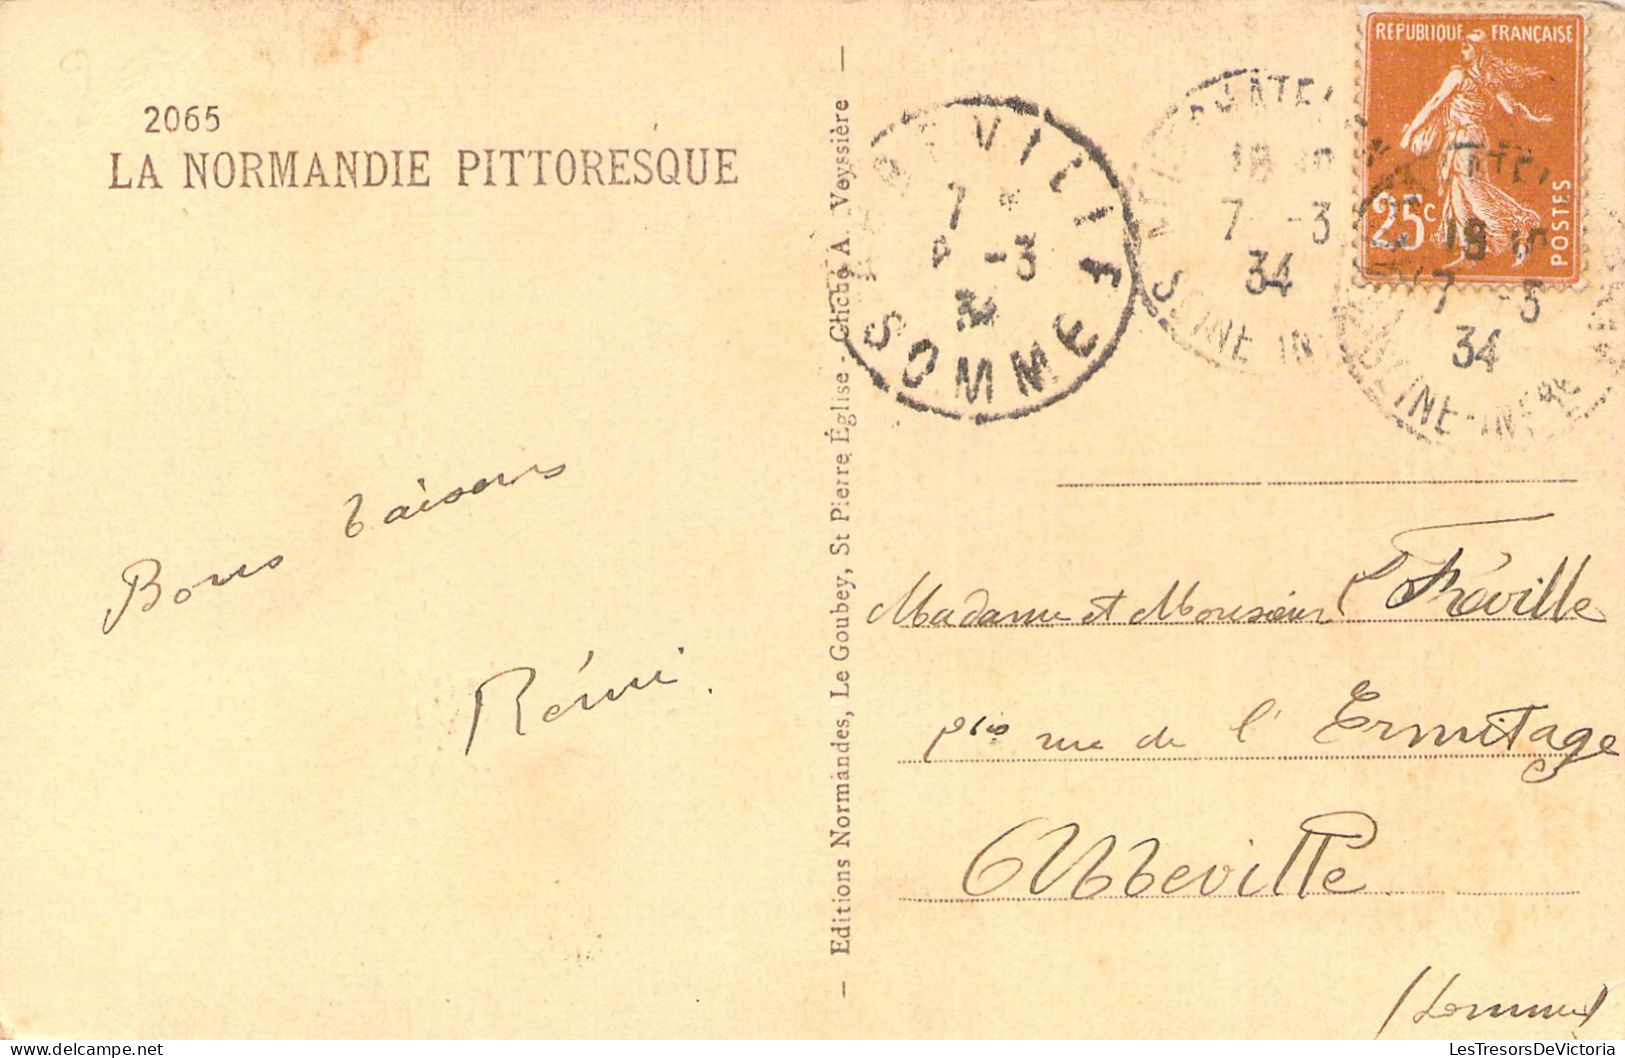 2065
LA NORMANDIE PITTORESQUE
Bons baisers
Rémi.
— Editions Normandes, Le Goubey, St Pierre Église - Cliché A. Veyssière —
VILLE
7 *
8 -3
34
SOMME
18
7 -3
34
SEINE IN
RÉPUBLIQUE FRANÇAISE
25c
POSTES
18
7 -3
34
SEINE-INFRE
Madame et Monsieur Fréville
rue de l'Ermitage
Abbeville
(Somme)
LesTresorsDeVictoria